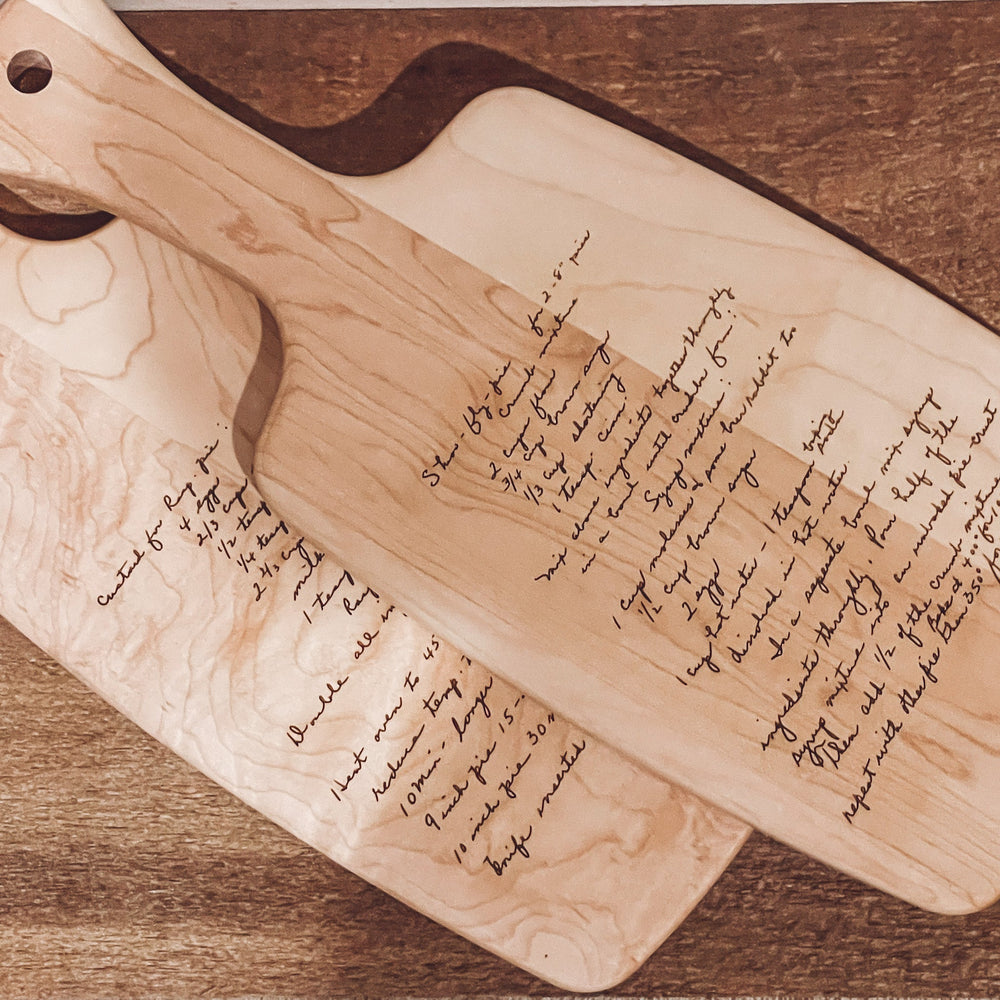 Custard for Rasp. pie:
4 eggs
2/3 cup
1/2 teasp
1/4 teasp
2 2/3 cup
milk
1 teasp
Rasp
Double all in
Heat oven to 45
reduce temp.
10 min - longer
9 inch pie 15-
10 inch pie 30 m
knife inserted
Shoo-fly-pie for 2-8" pies
Crumb mixture
2 cups flour
3/4 cup brown sugar
1/3 cup shortening
1 teasp. cinn.
Mix above ingredients together thoroughly
in a bowl until crumbs form:
Syrup mixture:
1 cup molasses & some hot
1/2 cup brown sugar
2 eggs
1 cup hot water - 1 teaspoon baking soda
dissolved in hot water.
In a separate bowl mix syrup
ingredients thoroughly. Pour half of the
syrup mixture into an unbaked pie crust
Then add 1/2 of the crumb mixture
Bake at 400° for
repeat with other pie then 350° for